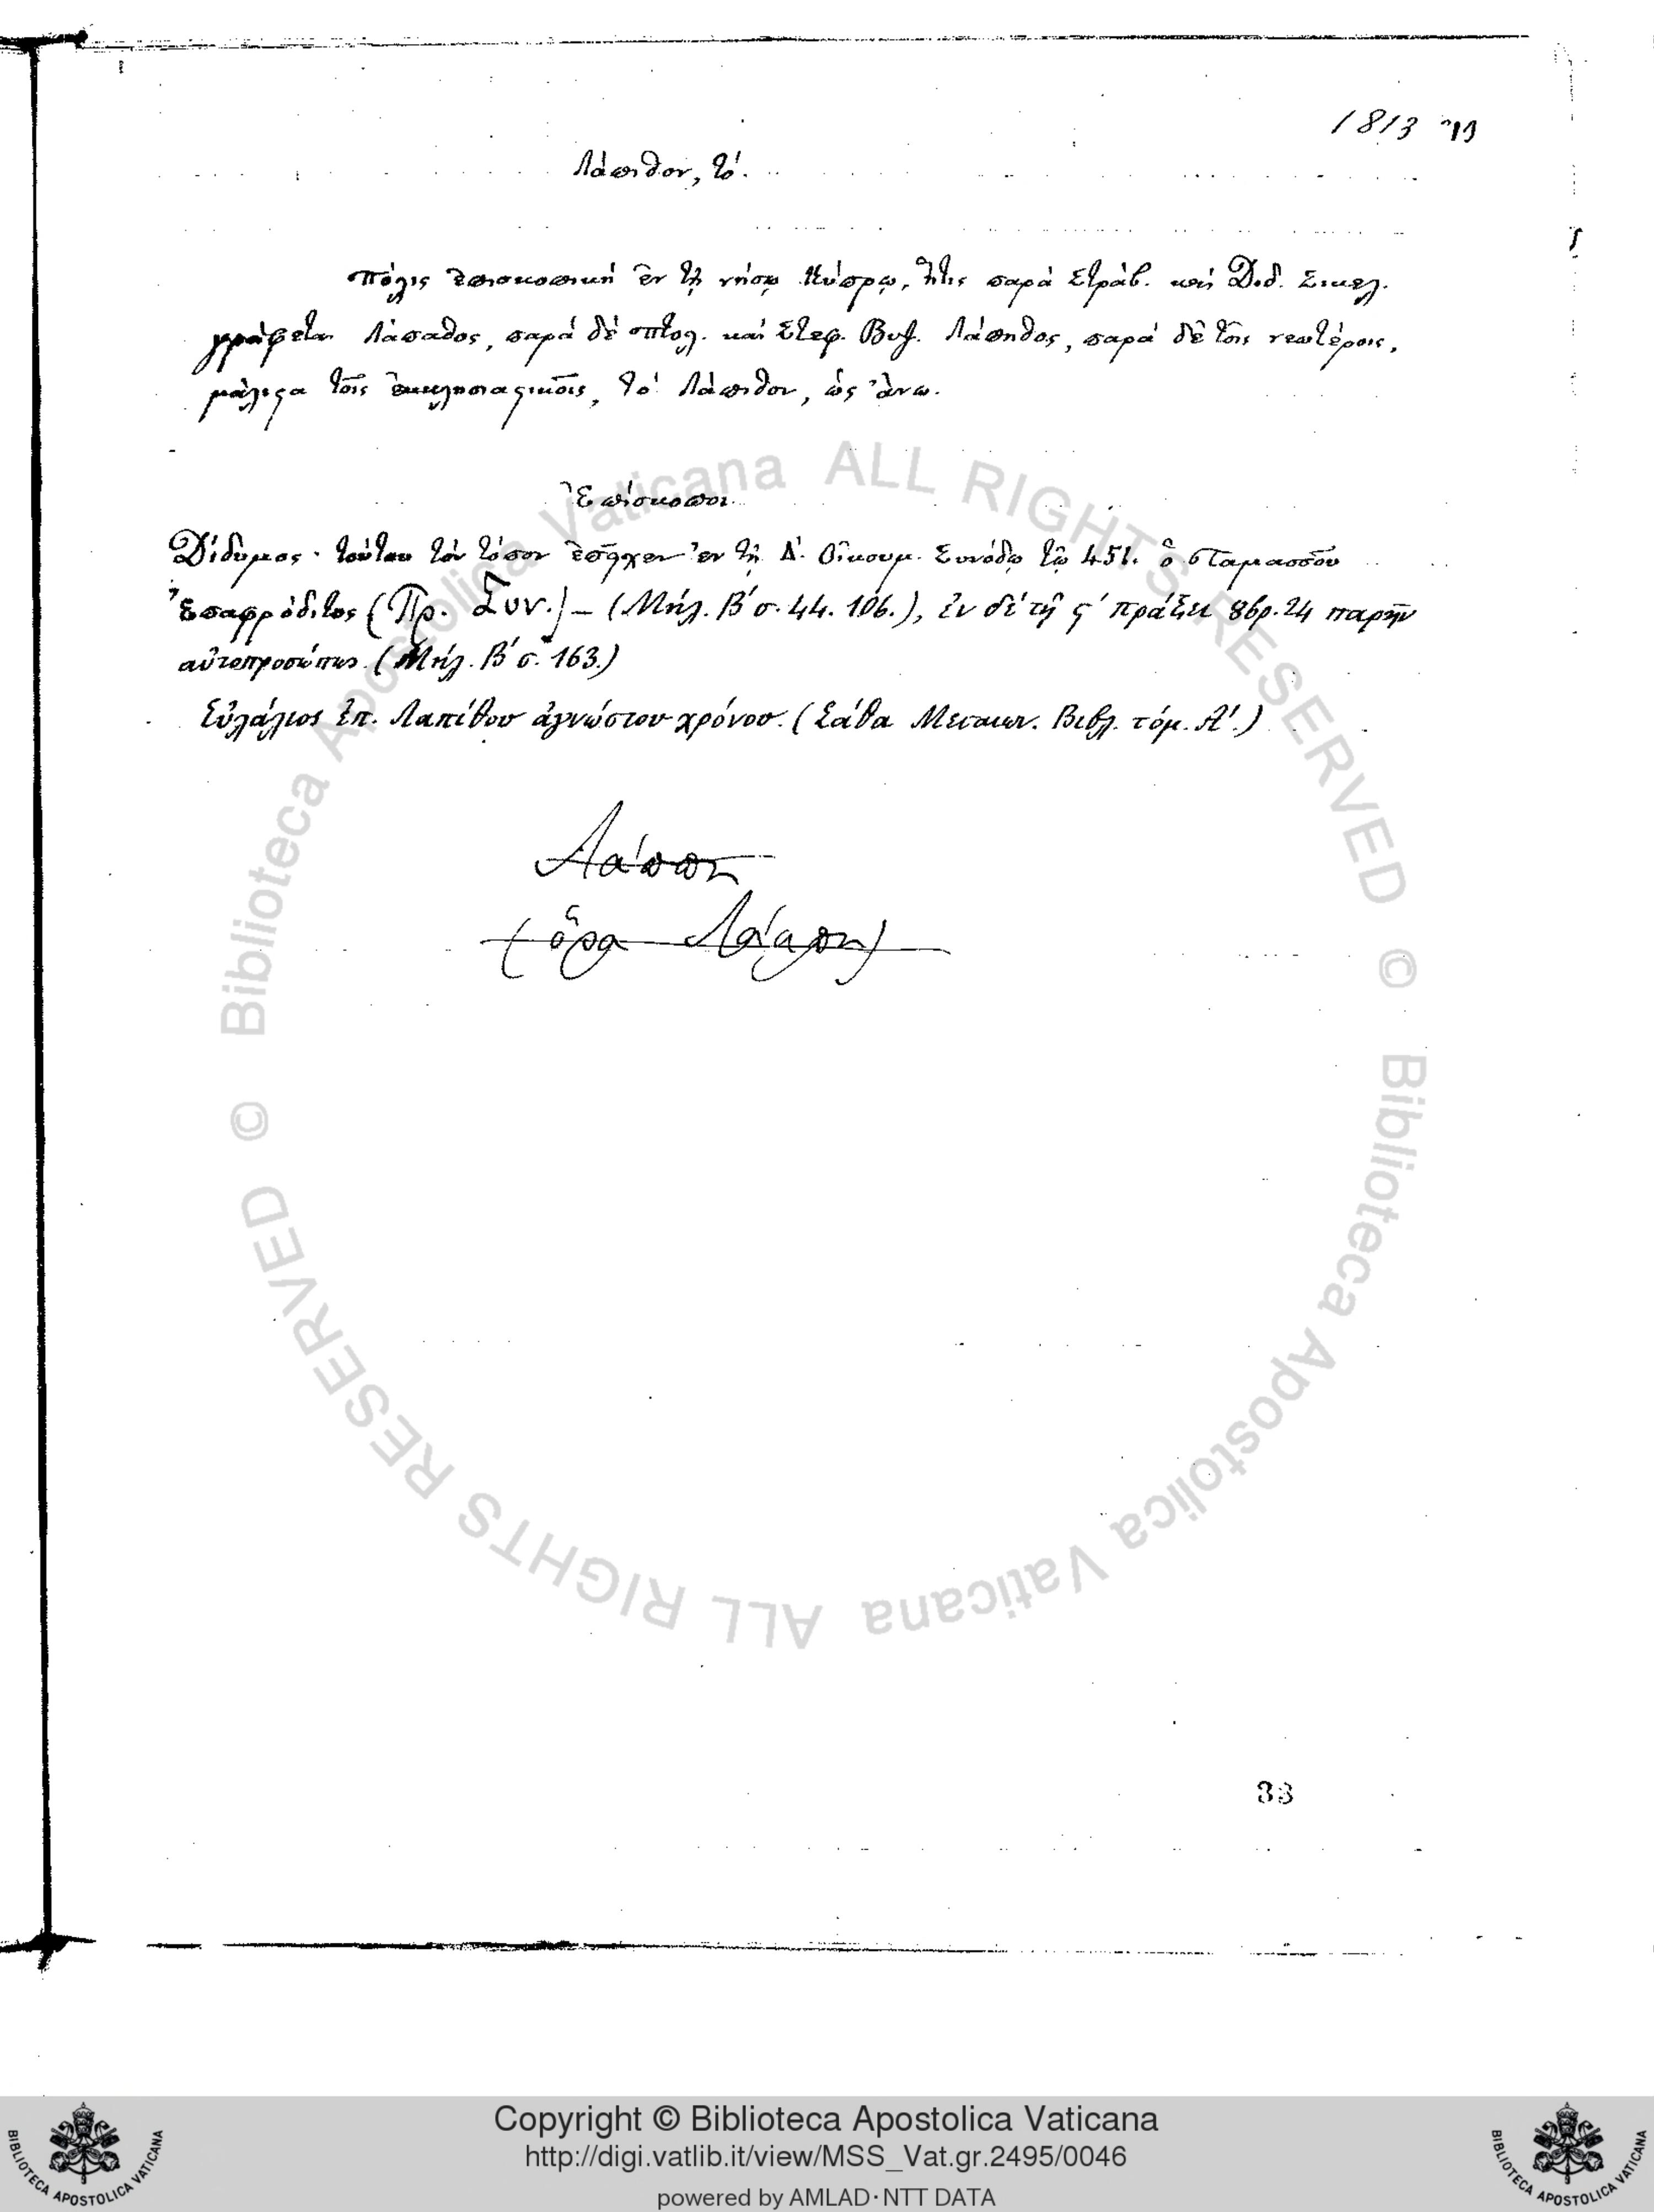 1813
Λάπιθον, τό.
Πόλις ἐπισκοπική ἐν τῇ νήσῳ Κύπρῳ, ἥτις παρά Στράβ. καί Διόδ. Σικελ.
γράφεται Λάπαθος, παρά δέ Πτολ. καί Στεφ. Βυζ. Λάπηθος, παρά δέ τοῖς νεωτέροις,
μάλιςα τοῖς ἐκκλησιαςικοῖς, τό Λάπιθον, ὡς ἄνω.
Ἐπίσκοποι
Δίδυμος· τούτου τόν τόπον ἐπῆχεν ἐν τῇ Δ. Οἰκουμ. Συνόδῳ τῷ 451. ὁ Ταμασσοῦ
Ἐπαφρόδιτος (Πρ. Συν.) – (Μήλ. Β΄ σ. 44. 106.), ἐν δέ τῇ ς΄ πράξει 8βρ. 24 παρῆν
αὐτοπροσώπως. (Μήλ. Β΄ σ. 163.)
Εὐλάλιος ἐπ. Λαπίθου ἀγνώστου χρόνου. (Σάθα Μεσαιων. Βιβλ. τόμ. Α΄.)
Λάππη
(ὅρα Λάμπη)
38
Biblioteca Apostolica Vaticana ALL RIGHTS RESERVED ©
Biblioteca Apostolica Vaticana ALL RIGHTS RESERVED ©
Copyright © Biblioteca Apostolica Vaticana
http://digi.vatlib.it/view/MSS_Vat.gr.2495/0046
powered by AMLAD·NTT DATA
BIBLIOTECA APOSTOLICA VATICANA
BIBLIOTECA APOSTOLICA VATICANA